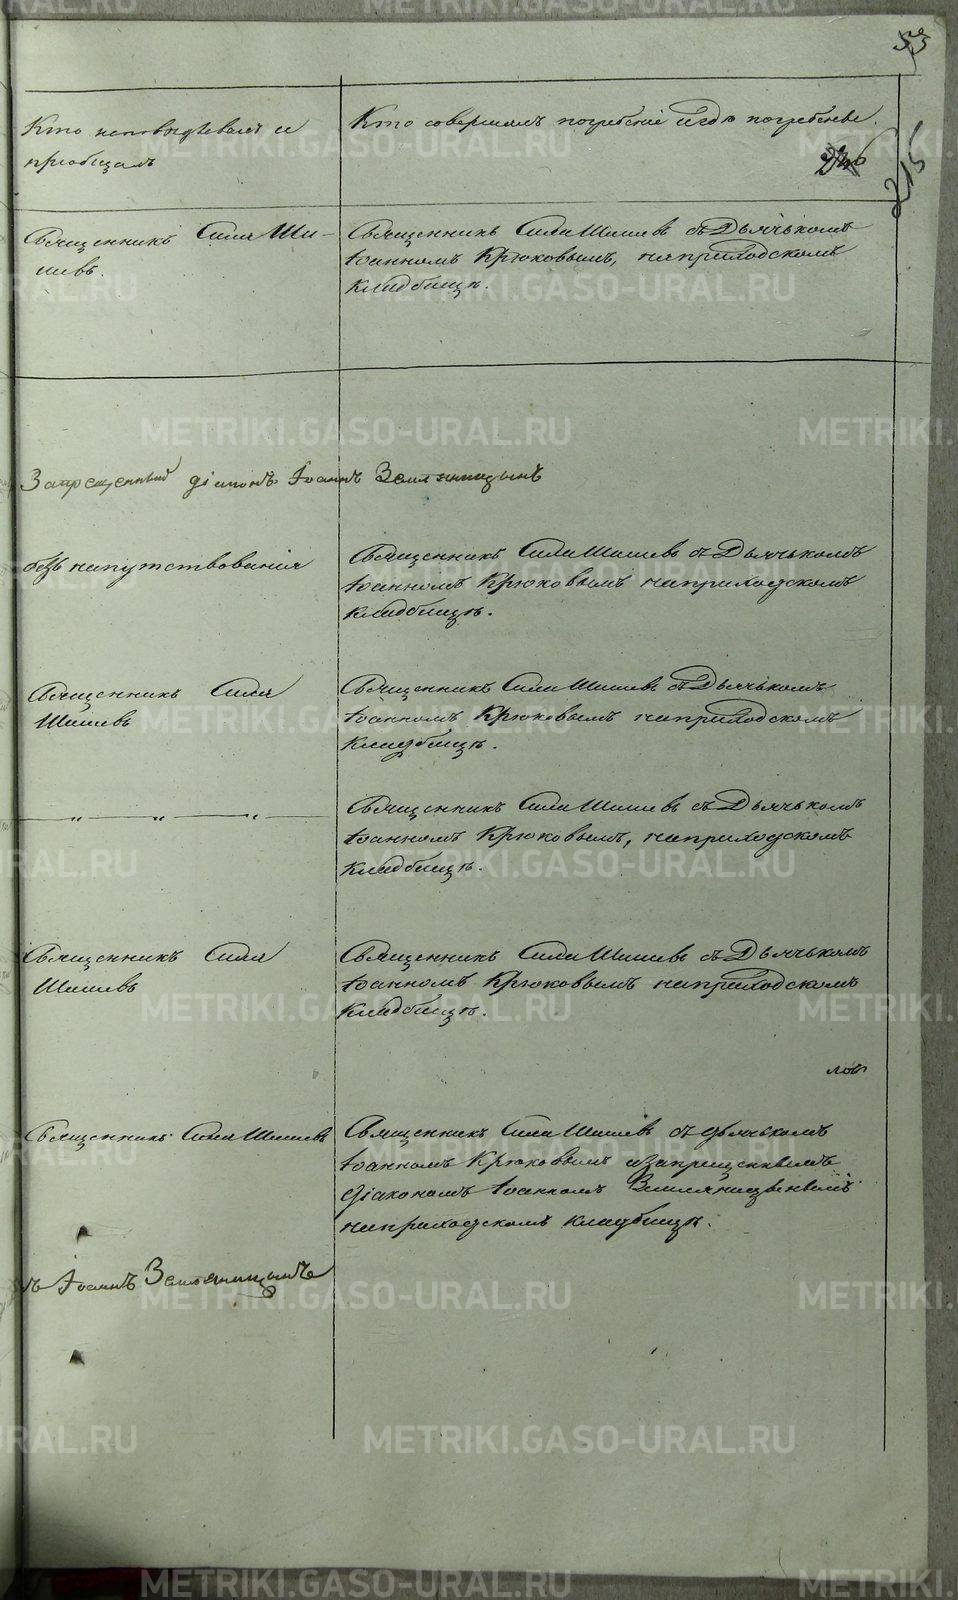 53
215
Кто исповѣдывалъ и
пріобщалъ
Кто совершалъ погребеніе и гдѣ погребены.
Священникъ Сила Ши-
шевъ.
Священникъ Сила Шишевъ съ Дьячькомъ
Іоанномъ Крюковымъ, наприходскомъ
кладбищѣ.
Запрещенный діаконъ Іоаннъ Земляницынъ
безъ напутствованія
Священникъ Сила Шишевъ съ Дьячькомъ
Іоанномъ Крюковымъ наприходскомъ
кладбищѣ.
Священникъ Сила
Шишевъ
Священникъ Сила Шишевъ съ Дьячькомъ
Іоанномъ Крюковымъ наприходскомъ
кладбищѣ.
— „ — „ — „
Священникъ Сила Шишевъ съ Дьячькомъ
Іоанномъ Крюковымъ, наприходскомъ
кладбищѣ.
Священникъ Сила
Шишевъ
Священникъ Сила Шишевъ съ Дьячькомъ
Іоанномъ Крюковымъ наприходскомъ
кладбищѣ.
Священникъ Сила Шишевъ
Священникъ Сила Шишевъ съ дьячькомъ
Іоанномъ Крюковымъ изапрещеннымъ
діакономъ Іоанномъ
наприходскомъ кладбищѣ.
ъ Іоаннъ Земляницынъ
METRIKI.GASO-URAL.RU